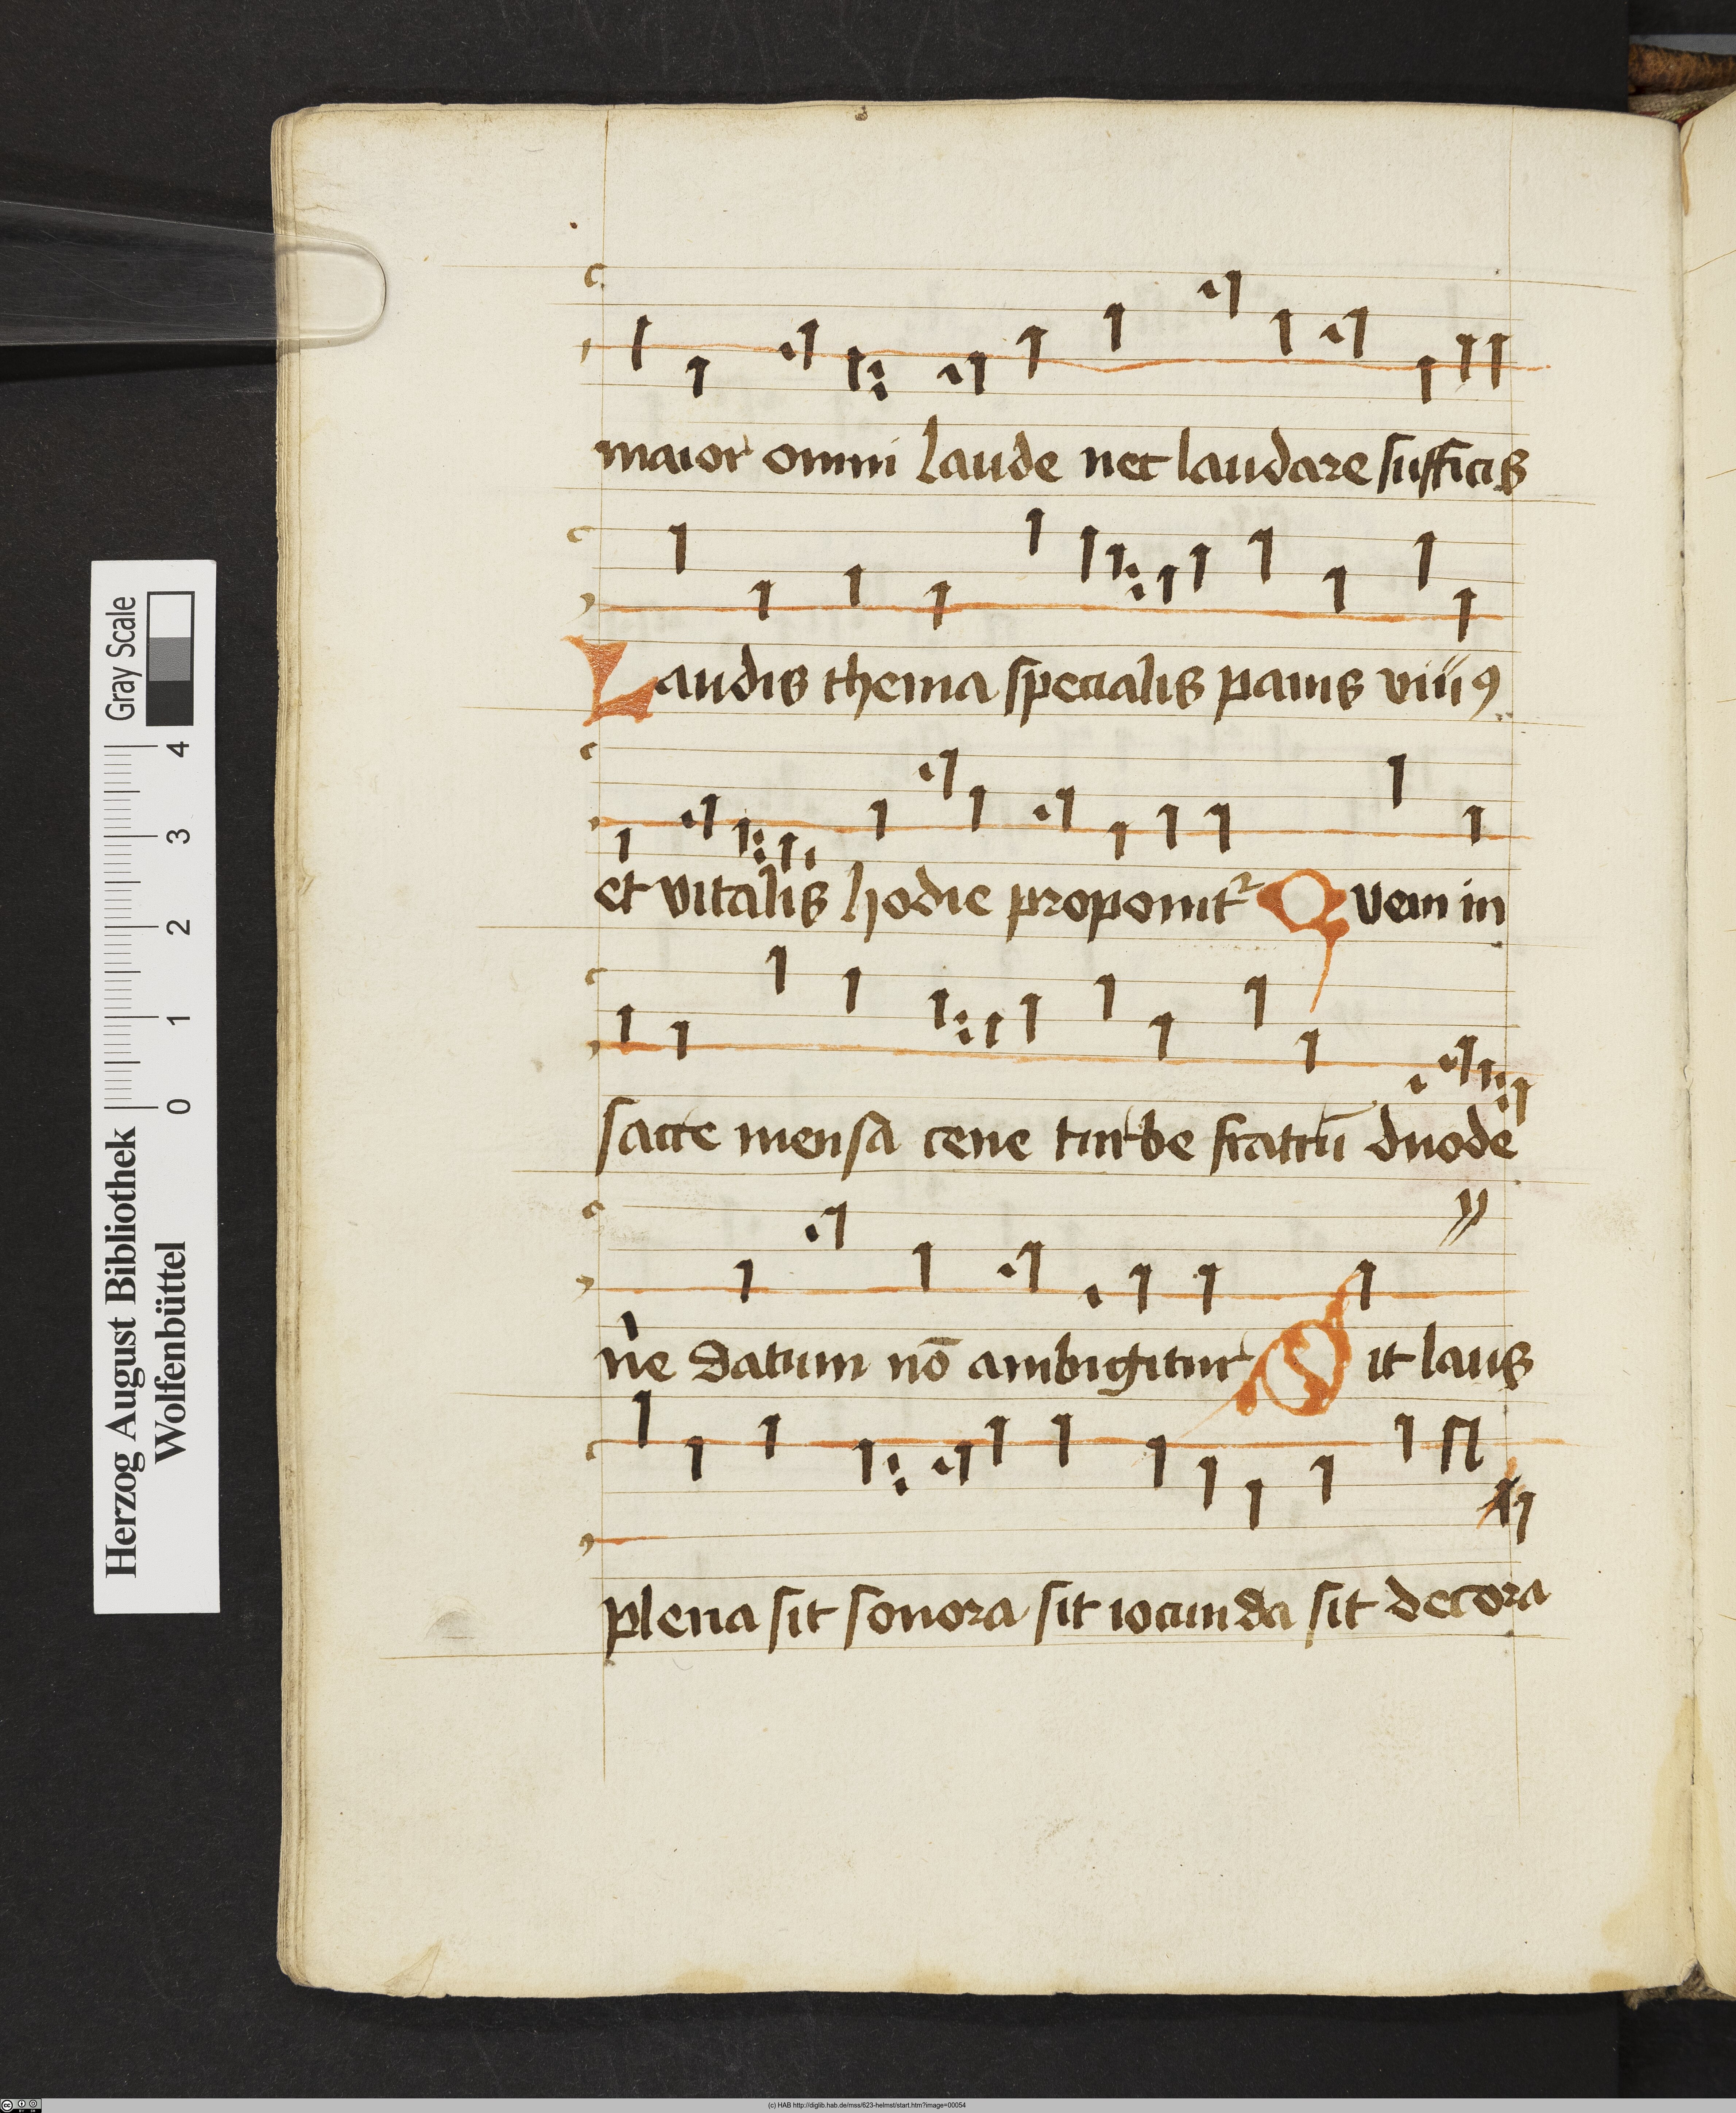 maior omni laude nec laudare sufficis
Laudis thema specialis panis viuꝰ
et vitalis hodie proponit² Quem in
sacre mensa cene turbe fratrū duode
ne datum nō ambigitur Sit laus
plena sit sonora sit iocunda sit decora
Herzog August Bibliothek
Wolfenbüttel
0 1 2 3 4
Gray Scale
(c) HAB http://diglib.hab.de/mss/623-helmst/start.htm?image=00054